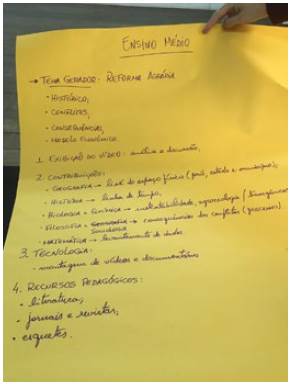 ENSINO MÉDIO
→ TEMA GERADOR: REFORMA AGRÁRIA
• HISTÓRICO;
• CONFLITOS;
• CONSEQUÊNCIAS;
• MODELO ECONÔMICO
1. EXIBIÇÃO DO VÍDEO: análise e discussão;
2. CONTRIBUIÇÃO:
• GEOGRAFIA → local do espaço físico (país, estado e município);
• HISTÓRIA → linha do tempo;
• BIOLOGIA e QUÍMICA → sustentabilidade, agroecologia (transgênicos
• FILOSOFIA e SOCIOLOGIA → consequências dos conflitos (processos)
• MATEMÁTICA → levantamento de dados
3. TECNOLOGIA:
• montagem de vídeos e documentários
4. RECURSOS PEDAGÓGICOS:
• literatura;
• jornais e revistas;
• esquetes.